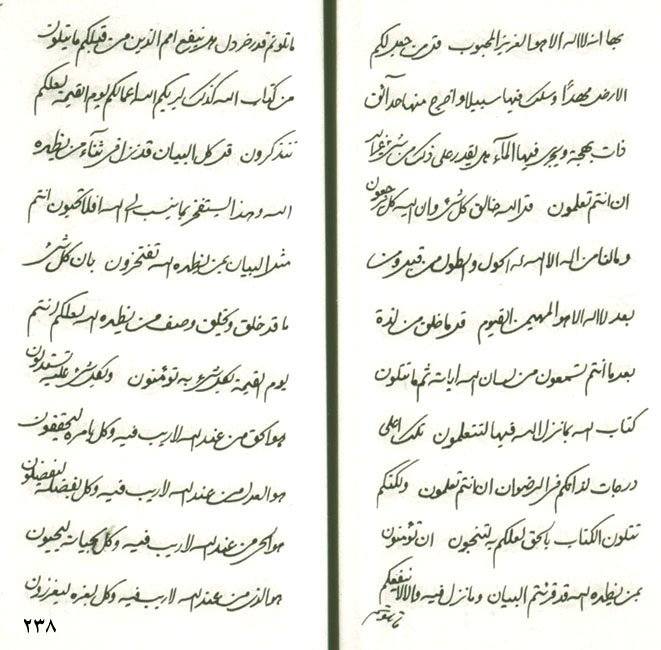 بها انه لااله الا هو العزيز المحبوب قل من جعل لكم
الارض مهدا وسلك فيها سبيلا واخرج منها حدآئق
ذات بهجة ويجرى فيها المآء هل يقدر على ذلك من شىء
ان انتم تعلمون قل الله خالق كل شىء وان اليه كل يرجعون
ومالنا من اله الا الله له الحول والطول من قبل ومن
بعد لااله الا هو المهيمن القيوم قد ما خلق من لذة
بعد ما انتم تسمعون من لسان الله اياته ثم ما تتلون
كتاب الله بما نزل الله فيها لتتعلمون تلك اعلى
درجات لذاتكم فى الرضوان ان انتم تعلمون ولكنكم
تتلون الكتاب بالحق لعلكم به لتنجون ان تؤمنون
بمن يظهره الله قد قرئتم البيان وما نزل فيه والا لا ينفعكم
ما تلوتم قدر خردل هل ينفع امم الذين من قبلكم ما يتلون
من كتاب الله كذلك ليريكم الله اعمالكم يوم القيمة لعلكم
تتذكرون قل كل البيان قد نزل فى ثنآء من يظهره
الله وهذا ليستفخر بما ينسب الى الله افلا تحبون انتم
مثل البيان بمن يظهره الله تفتخرون بان كل شىء
ما قد خلق ويخلق وصف من يظهره الله لعلكم انتم
يوم القيمة لكل شىء به تؤمنون وبكل شىء عليه تستدلون
هو الحق من عند الله لا ريب فيه وكل بامره ليحققون
هو العدل من عند الله لا ريب فيه وكل بفضله ليفضلون
هو الحى من عند الله لا ريب فيه وكل بحياته ليحييون
هو الذى من عند الله لا ريب فيه وكل بعزه ليعززون
٢٣٨